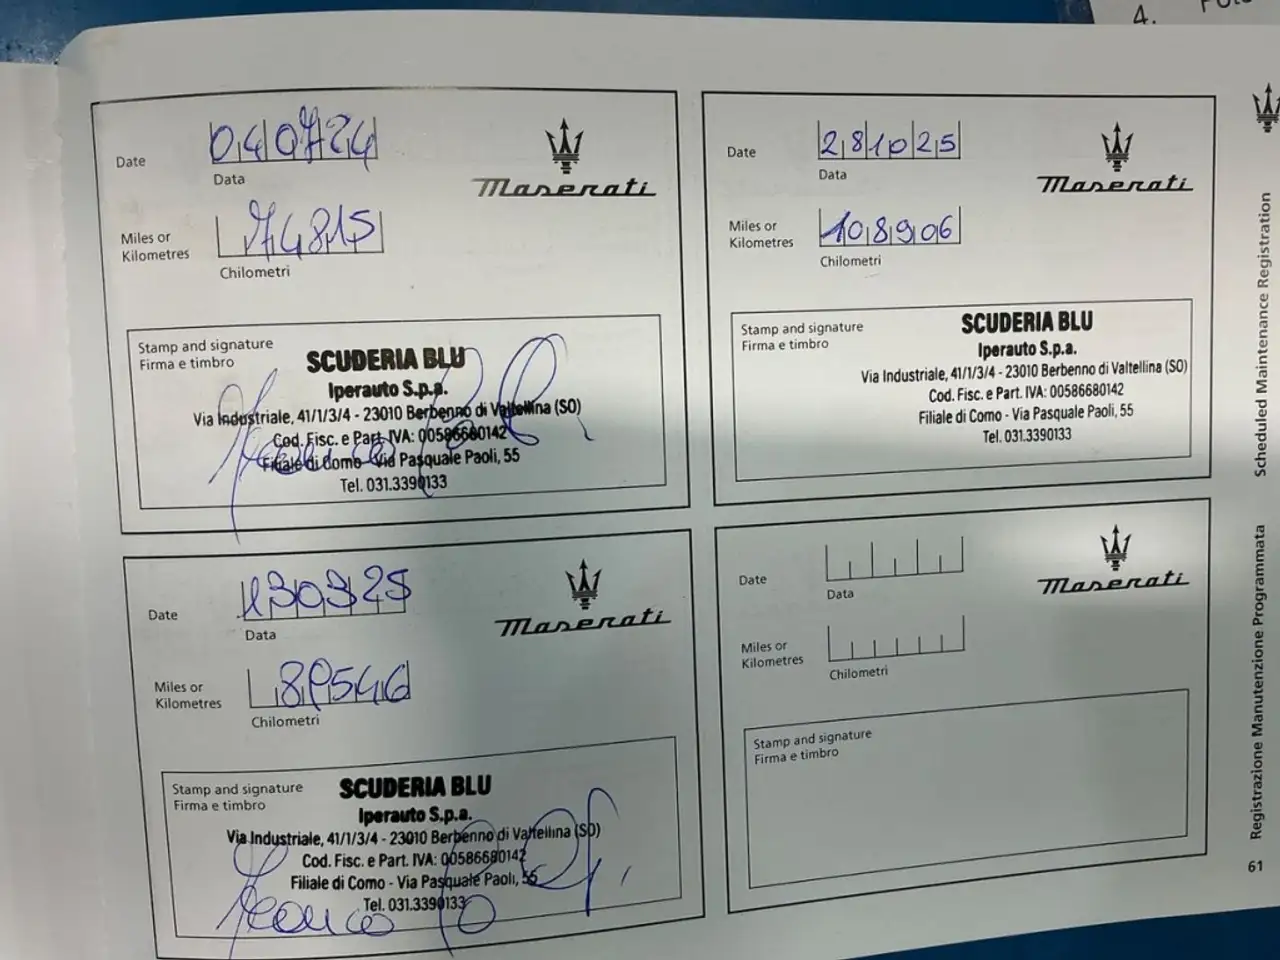 4.
040724
Date
Data
Maserati
74815
Miles or
Kilometres
Chilometri
Stamp and signature
Firma e timbro
SCUDERIA BLU
Iperauto S.p.a.
Via Industriale, 41/1/3/4 - 23010 Berbenno di Valtellina (SO)
Cod. Fisc. e Part. IVA: 00586680142
Filiale di Como - Via Pasquale Paoli, 55
Tel. 031.3390133
281025
Date
Data
Maserati
108906
Miles or
Kilometres
Chilometri
Stamp and signature
Firma e timbro
SCUDERIA BLU
Iperauto S.p.a.
Via Industriale, 41/1/3/4 - 23010 Berbenno di Valtellina (SO)
Cod. Fisc. e Part. IVA: 00586680142
Filiale di Como - Via Pasquale Paoli, 55
Tel. 031.3390133
130325
Date
Data
Maserati
Miles or
Kilometres
Chilometri
Stamp and signature
Firma e timbro
SCUDERIA BLU
Iperauto S.p.a.
Via Industriale, 41/1/3/4 - 23010 Berbenno di Valtellina (SO)
Cod. Fisc. e Part. IVA: 00586680142
Filiale di Como - Via Pasquale Paoli, 55
Tel. 031.3390133
Date
Data
Maserati
Miles or
Kilometres
Chilometri
Stamp and signature
Firma e timbro
Scheduled Maintenance Registration
Registrazione Manutenzione Programmata
61